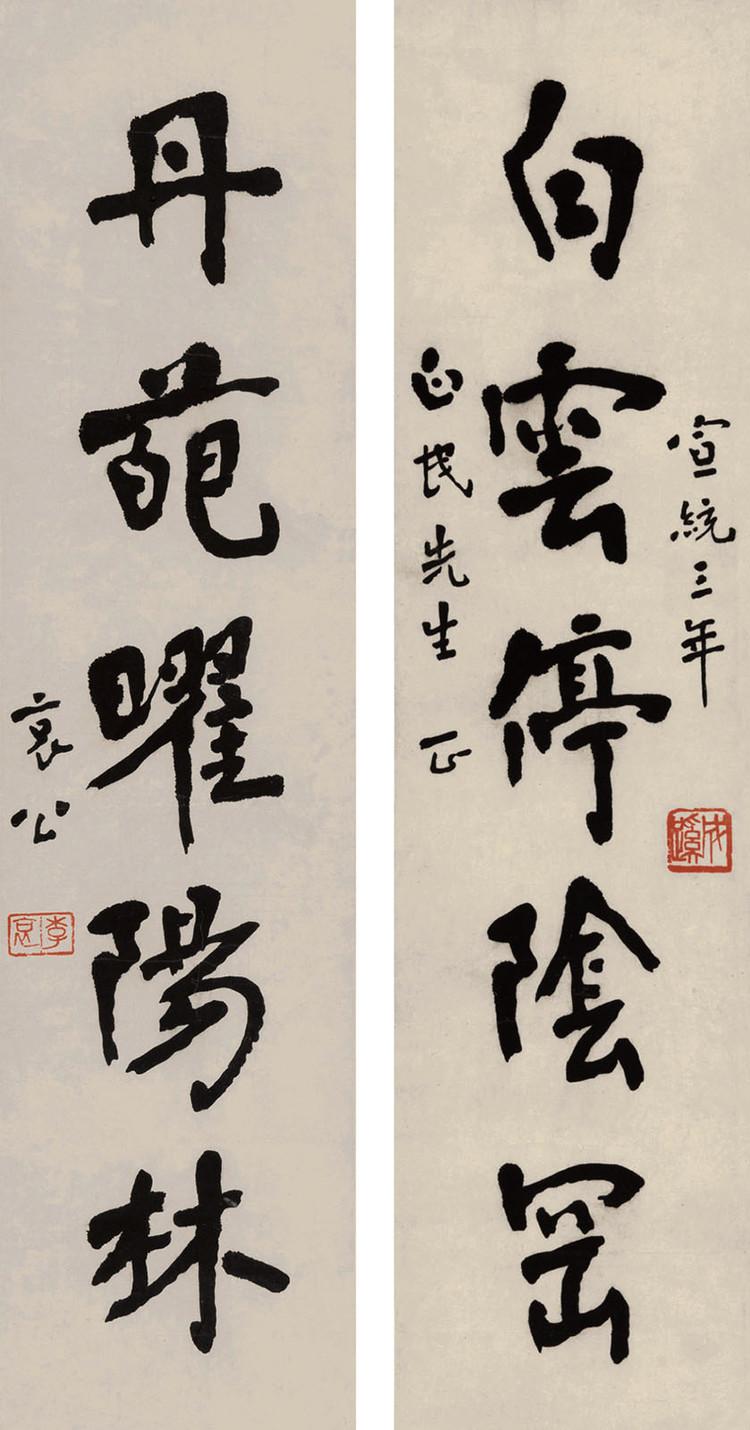 宣統三年
白雲停陰岡
民先生 正
丹葩曜陽林
哀公
李哀